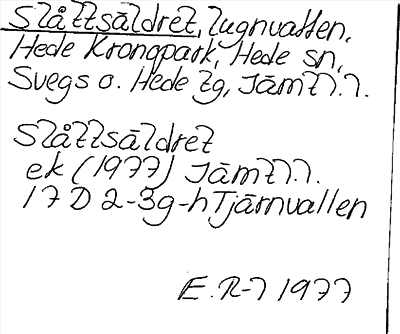 Slåttsäldret, lugnvatten,
Hede Kronopark, Hede sn,
Svegs o. Hede tg, Jämtl.l.
Slåttsäldret
ek (1977) Jämtl.l.
17 D 2-3g-h Tjärnvallen
E.R-l 1977